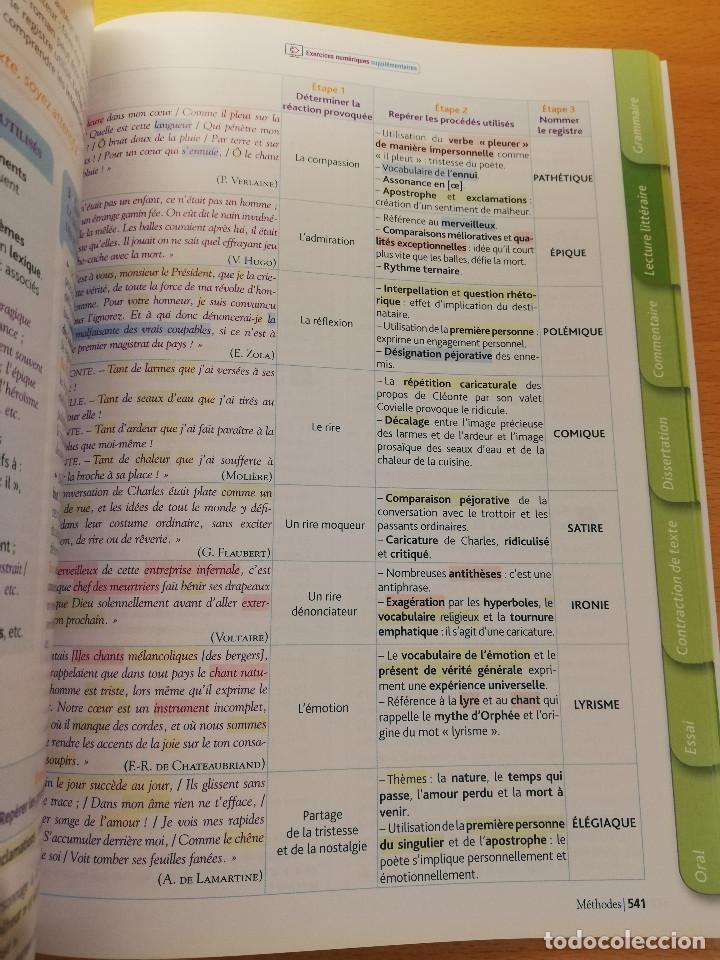 Exercices numériques supplémentaires
Étape 1
Déterminer la
réaction provoquée
Étape 2
Repérer les procédés utilisés
Étape 3
Nommer
le registre
dans mon cœur / Comme il pleut sur la
Quelle est cette langueur / Qui pénètre mon
Ô bruit doux de la pluie / Par terre et sur
! / Pour un cœur qui s'ennuie, / Ô le chant
pluie ! »
(P. VERLAINE)
La compassion
– Utilisation du verbe « pleurer »
de manière impersonnelle comme
« il pleut » : tristesse du poète.
– Vocabulaire de l'ennui.
– Assonance en [œ]
– Apostrophe et exclamations :
création d'un sentiment de malheur.
PATHÉTIQUE
n'était pas un enfant, ce n'était pas un homme ;
un étrange gamin fée. On eût dit le nain invulné-
la mêlée. Les balles couraient après lui, il était
ste qu'elles. Il jouait on ne sait quel effrayant jeu
-cache avec la mort. »
(V. HUGO)
L'admiration
– Référence au merveilleux.
– Comparaisons mélioratives et qua-
lités exceptionnelles : idée qu'il court
plus vite que les balles, défie la mort.
– Rythme ternaire.
ÉPIQUE
est à vous, monsieur le Président, que je la crie-
te vérité, de toute la force de ma révolte d'hon-
homme. Pour votre honneur, je suis convaincu
l'ignorez. Et à qui donc dénoncerai-je la
malfaisante des vrais coupables, si ce n'est à
premier magistrat du pays ! »
(E. ZOLA)
La réflexion
– Interpellation et question rhéto-
rique : effet d'implication du desti-
nataire.
– Utilisation de la première personne :
exprime un engagement personnel.
– Désignation péjorative des enne-
mis.
POLÉMIQUE
ONTE. – Tant de larmes que j'ai versées à ses
!
LLE. – Tant de seaux d'eau que j'ai tirés au
our elle !
NTE. – Tant d'ardeur que j'ai fait paraître à la
plus que moi-même !
LLE. – Tant de chaleur que j'ai soufferte à
la broche à sa place ! »
(MOLIÈRE)
Le rire
– La répétition caricaturale des
propos de Cléonte par son valet
Covielle provoque le ridicule.
– Décalage entre l'image précieuse
des larmes et de l'ardeur et l'image
prosaïque des seaux d'eau et de la
chaleur de la cuisine.
COMIQUE
conversation de Charles était plate comme un
de rue, et les idées de tout le monde y défi-
dans leur costume ordinaire, sans exciter
on, de rire ou de rêverie. »
(G. FLAUBERT)
Un rire moqueur
– Comparaison péjorative de la
conversation avec le trottoir et les
passants ordinaires.
– Caricature de Charles, ridiculisé
et critiqué.
SATIRE
merveilleux de cette entreprise infernale, c'est
que chef des meurtriers fait bénir ses drapeaux
que Dieu solennellement avant d'aller exter-
on prochain. »
(VOLTAIRE)
Un rire
dénonciateur
– Nombreuses antithèses : c'est une
antiphrase.
– Exagération par les hyperboles, le
vocabulaire religieux et la tournure
emphatique : il s'agit d'une caricature.
IRONIE
utais [l]es chants mélancoliques [des bergers],
rappelaient que dans tout pays le chant natu-
homme est triste, lors même qu'il exprime le
Notre cœur est un instrument incomplet,
où il manque des cordes, et où nous sommes
rendre les accents de la joie sur le ton consa-
soupirs. »
(F.-R. DE CHATEAUBRIAND)
L'émotion
– Le vocabulaire de l'émotion et le
présent de vérité générale expri-
ment une expérience universelle.
– Référence à la lyre et au chant qui
rappelle le mythe d'Orphée et l'ori-
gine du mot « lyrisme ».
LYRISME
in le jour succède au jour, / Ils glissent sans
e trace ; / Dans mon âme rien ne t'efface, /
er songe de l'amour ! / Je vois mes rapides
S'accumuler derrière moi, / Comme le chêne
e soi / Voit tomber ses feuilles fanées. »
(A. DE LAMARTINE)
Partage
de la tristesse
et de la nostalgie
– Thèmes : la nature, le temps qui
passe, l'amour perdu et la mort à
venir.
– Utilisation de la première personne
du singulier et de l'apostrophe : le
poète s'implique personnellement et
émotionnellement.
ÉLÉGIAQUE
Méthodes | 541
Grammaire
Lecture littéraire
Commentaire
Dissertation
Contraction de texte
Essai
Oral
todocoleccion.net